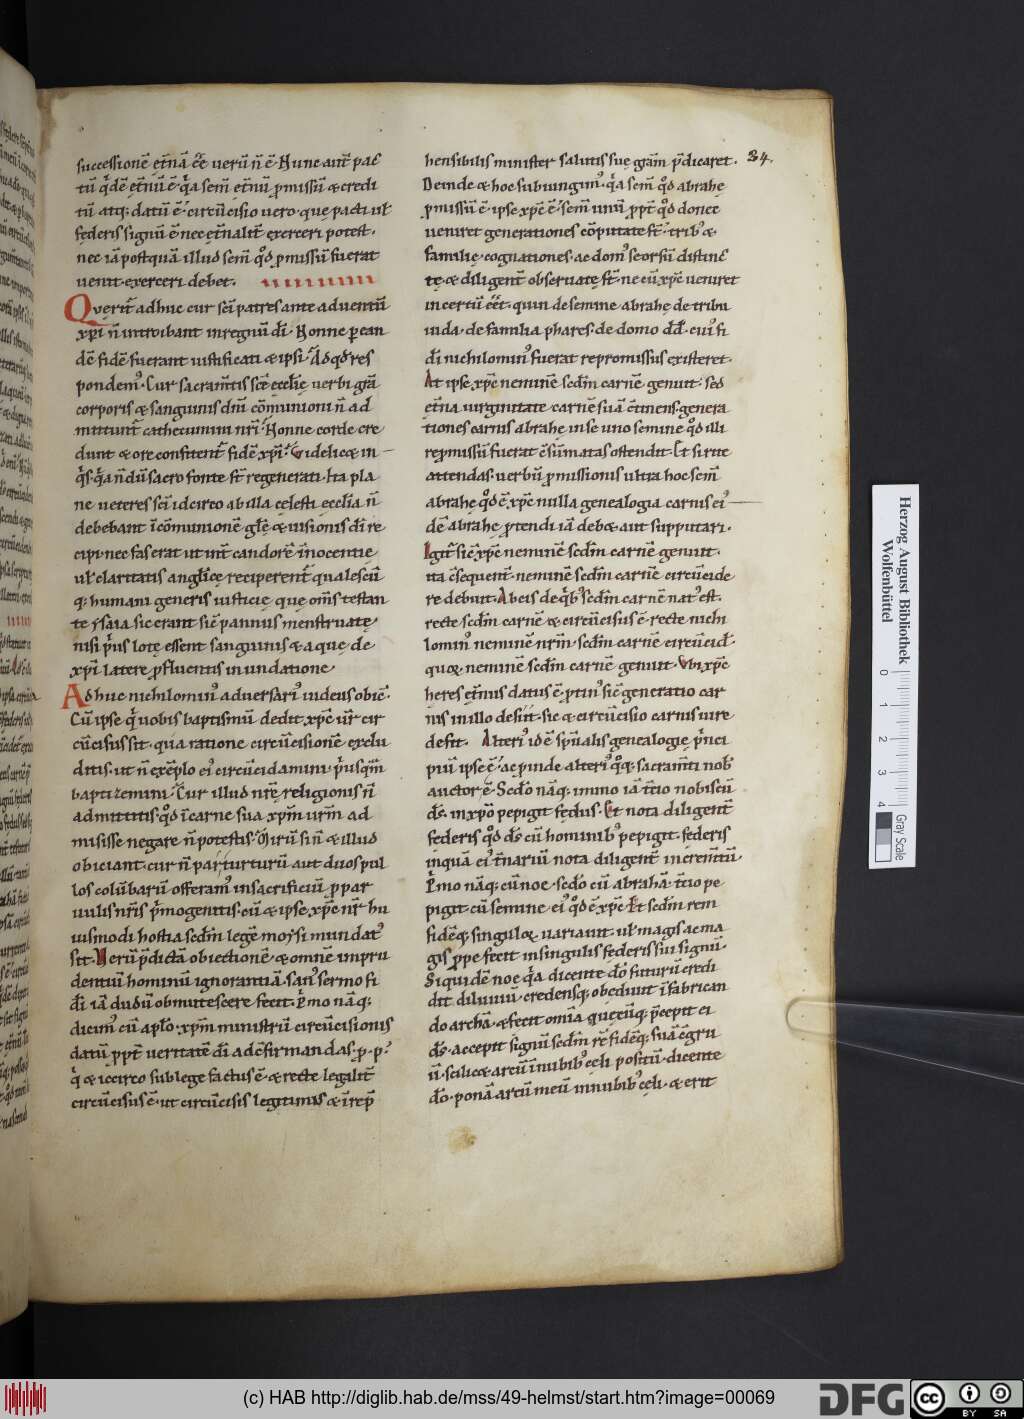 successionē et̄nā ēē verū n̄ ē. Hunc aut̄ pac
tū q̇dē et̄nū ē. q̇a sem̄ et̄nū ꝓmissū & credi
tū atq; datū ē. circūcisio vero. quę pacti ul̄
fęderis signū ē. nec et̄nalit̄ exerceri potest.
nec iā postquā illud sem̄ qͦd ꝓmissū fuerat
venit. exerceri debet.
Querit̄ adhuc cur sc̄i patres ante adventū
xp̄i n̄ introibant in regnū dī. Nonne ꝑ ean
dē fidē fuerant iustificati & ipsi. Ad qͦd res
pondemꝰ. Cur sacram̄tis sc̄ę ęcclię verbi grā
corporis & sanguinis dn̄i cōmunioni n̄ ad
mittunt̄ cathecumini nr̄i. Nonne corde cre
dunt & ore confitent̄ fidē xp̄i. Videlic& in
q̇s. q̇a n̄dū sacro fonte st̄ regenerati. Ita pla
ne veteres sc̄i idcirco ab illa cęlesti ęcclīa n̄
debebant ī cōmunionē glę̄ & visionis dī re
cipi. nec fas erat ut int̄ candorē īnocentie
ul̄ claritatis anglīcę reciperent̄ qualescū
q; humani generis iusticię. quę om̄s testan
te ysaia sic erant sic̄ pannus menstruatę
nisi p̄us lotę essent sanguinis & aquę de
xp̄i latere ꝓfluentis inundatione
Adhuc nichilominꝰ adversariꝰ iudeus obic̄.
Cū ipse q̇ vobis baptismū dedit xp̄c ur̄ cir
cūcisus sit. qua ratione circūcisionē exclu
ditis. ut n̄ exēplo eiꝰ circūcidamini. p̄usq̄m
baptizemini. Cur illud nr̄ę religionis n̄
admittitis. qͦd ī carne sua xp̄m ur̄m ad
misisse negare n̄ potestis. Mirū si n̄ & illud
obiciant. cur n̄ par turturū aut duos pul
los colūbarū offeramꝰ in sacrificiū ꝓ par
vulis nr̄is p̄mogenitis. cū & ipse xp̄c nr̄ hu
iusmodi hostia secd̄m legē moysi mundatꝰ
sit. Verū p̄dictā obiectionē & omnē impru
dentiū hominū ignorantiā. sanꝰ sermo fi
dī iā dudū obmutescere fecit. P̄mo nāq;
dicimꝰ cū aplō. xp̄m ministrū circūcisionis
datū ꝓpt̄ veritatē dī ad c̄firmandas ꝓ. p.
q̇ & iccirco sub lege factus ē. & recte legalit̄
circūcisus ē. ut circūcisis legitimus & īrep̄
hensibilis minister salutis suę grām p̄dicaret. 34.
Deinde & hoc subiungimꝰ. q̇a sem̄ qͦd abrahę
ꝓmissū ē. ipse xp̄c ē. sem̄ unū ꝓpt̄ qͦd donec
veniret generationes cōputate st̄. tribꝰ &
familię. cognationes. ac domꝰ seorsū distinc
tę. & diligent̄ observatę st̄. ne cū xp̄c veniret
incertū ēēt. quin de semine abrahę de tribu
iuda. de familia phares. de domo dd̄. cuiꝰ fi
dī nichilominꝰ fuerat repromissus existeret.
At ipse xp̄c neminē secd̄m carnē genuit. sed
et̄na virginitate carnē suā c̄tinens. genera
tiones carnis abrahę in se uno semine qͦd illi
repmissū fuerat c̄sūmatas ostendit. Et si rite
attendas. verbū ꝓmissionis ultra hoc sem̄
abrahę qͦd ē xp̄c nulla genealogia carnis eiꝰ
dē abrahę ꝓtendi iā deb& aut supputari.
Igit̄ sic̄ xp̄c neminē secd̄m carnē genuit.
ita c̄sequent̄. neminē secd̄m carnē circūcide
re debuit. Ab eis de q̇bꝰ secd̄m carnē natꝰ est.
recte secd̄m carnē & circūcisus ē. recte nichi
lominꝰ neminē nr̄m secd̄m carnē circūcid̄.
quoꝗ neminē secd̄m carnē genuit. Ubi xp̄c
heres et̄nus datus ē. ꝓtinꝰ sic̄ generatio car
nis in illo desiit. sic & circūcisio carnis iure
desiit. Alteriꝰ id ē sp̄nalis genealogię p̄nci
piū ipse ē. ac ꝓinde alteriꝰ qͦq; sacram̄ti nob̄
auctor ē. Secd̄o nāq; immo iā t̄tio nobiscū
ds̄. in xp̄o pepigit fędus. Et nota diligent̄
fęderis qͦd ds̄ cū hominibꝰ pepigit. fęderis
inquā eiꝰ t̄nariū nota diligent̄ increm̄tū.
P̄mo nāq; cū noe. secd̄o cū abrahā. t̄tio pe
pigit cū semine eiꝰ qͦd ē xp̄c. Et secd̄m rem
fidēq; singuloꝗ variavit. ul̄ magis ac ma
gis ꝓpe fecit in singulis fęderis sui signū.
Siquidē noe q̇a dicente dō futurū credi
dit diluviū. credensq; obedivit ī fabrican
do archā. & fecit om̄ia quęcūq; p̄cepit ei
ds̄. accepit signū secd̄m rē fidēq; suā c̄gru
ū. scilic& arcū in nubibꝰ cęli positū. dicente
dō. ponā arcū meū in nubibꝰ cęli. & erit
Herzog August Bibliothek
Wolfenbüttel
0 1 2 3 4
Gray Scale
(c) HAB http://diglib.hab.de/mss/49-helmst/start.htm?image=00069
DFG
cc BY SA